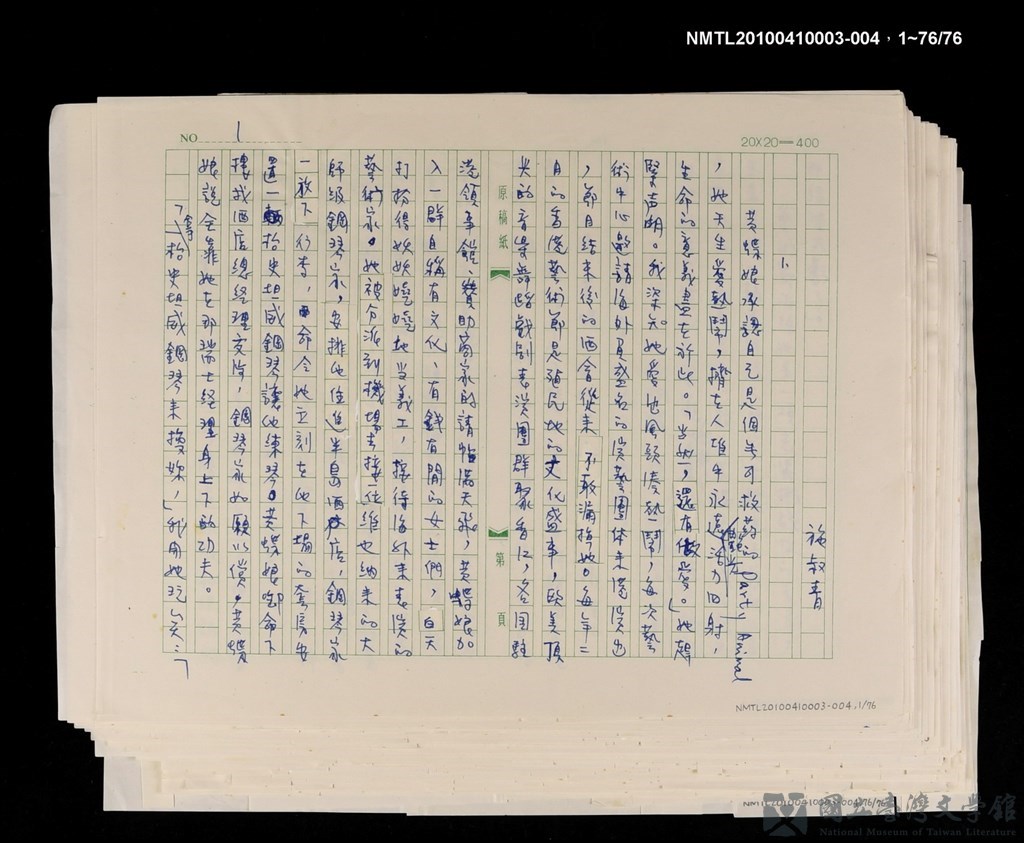 NMTL20100410003-004，1~76/76
NO 1
20X20=400
施叔青
1.
黃蝶娘承認自己是個無可救藥的Party Animal
，她天生愛熱鬧，擠在人堆中永遠活力四射，
生命的意義盡在於此。「當然，還有做愛。」她趕
緊声明。我深知她愛也風頭湊熱鬧，每次藝
術中心邀請海外負盛名的演藝團体來港演出
，節目結束後的酒會從來不敢漏掉她。每年二
月的香港藝術節是殖民地的文化盛事，歐美頂
尖的音樂舞蹈戲劇表演團群聚香江，各国駐
原稿紙
第 頁
港領事館、贊助商家的請帖滿天飛，黃蝶娘加
入一群自稱有文化、有錢有閒的女士們，白天
打扮得妖妖嬈嬈地当義工，接待海外來表演的
藝術家。她被分派到機場去接一位維也納來的大
師級鋼琴家，安排他住進半島酒店，鋼琴家
一放下行李，命令她立刻在他下場的套房安
置一抬史坦威鋼琴讓他練琴。黃蝶娘啣命下
樓找酒店總經理交涉，鋼琴家如願以償，黃蝶
娘說全靠她在那瑞士經理身上下的功夫。
「拿抬史坦威鋼琴來換妳，」我用她玩笑：「
NMTL20100410003-004,1/76
國立臺灣文學館
National Museum of Taiwan Literature